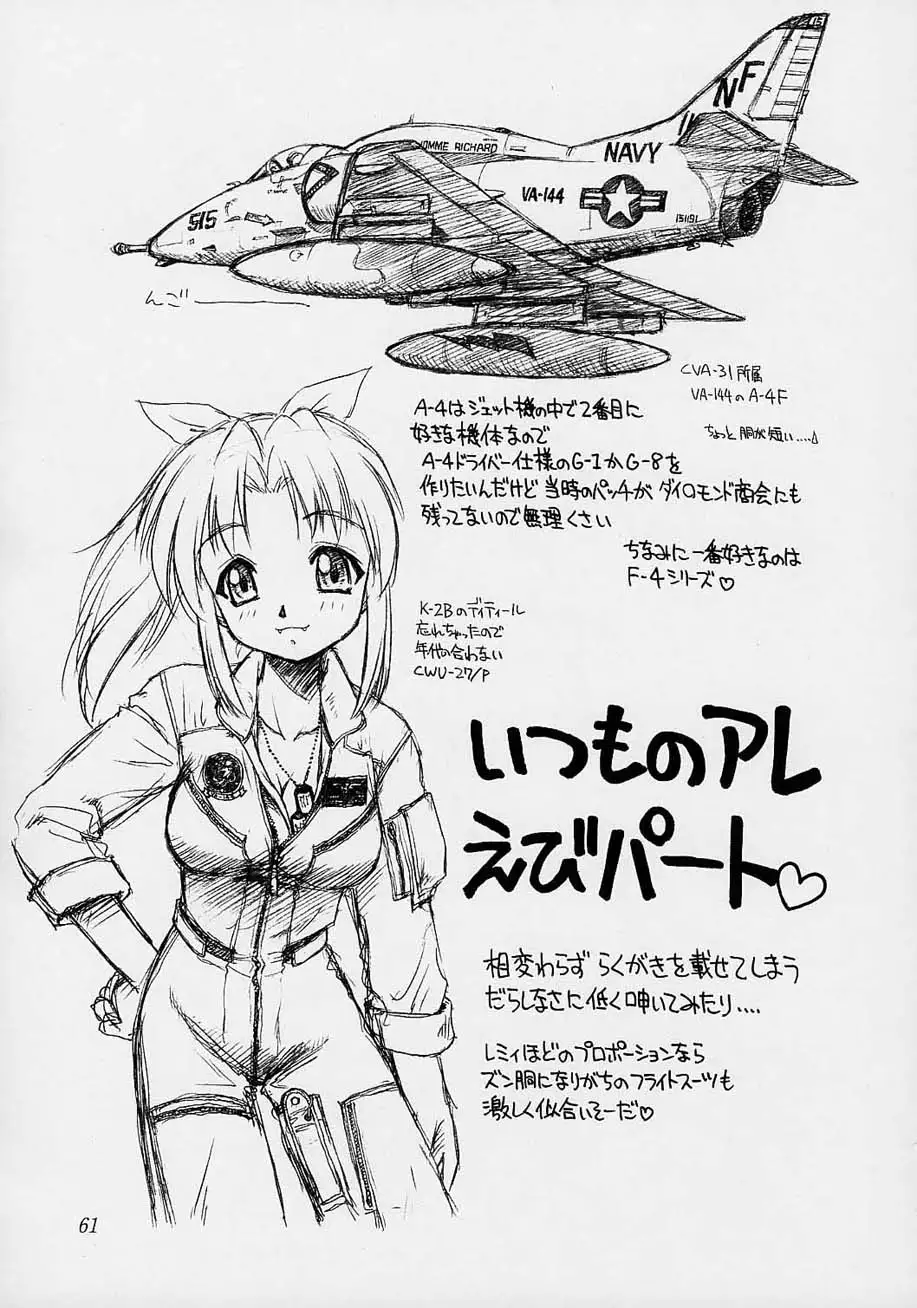 15
NF
11
NAVY
HOMME RICHARD
VA-144
151191
515
んごー
CVA-31所属
VA-144のA-4F
ちょっと胴が短い....
A-4はジェット機の中で2番目に
好きな機体なので
A-4ドライバー仕様のG-1かG-8を
作りたいんだけど 当時のパッチが ダイロモンド商会にも
残ってないので無理くさい
ちなみに一番好きなのは
F-4シリーズ♡
K-2Bのディティール
忘れちゃったので
年代の合わない
CWU-27/P
いつものアレ
えびパート♡
相変わらず らくがきを載せてしまう
だらしなさに低く呻いてみたり....
レミィほどのプロポーションなら
ズン胴になりがちのフライトスーツも
激しく似合いそーだ♡
61